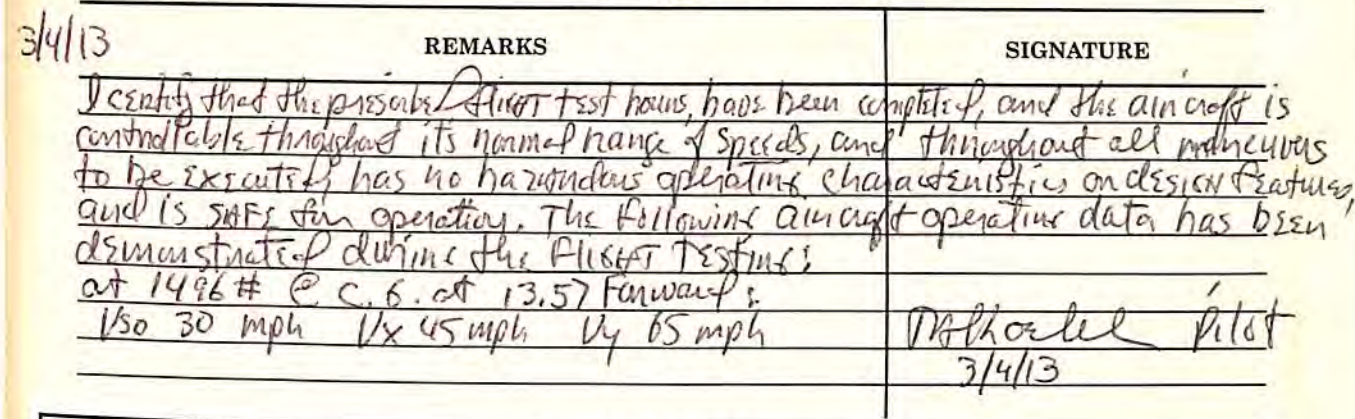 3/4/13
REMARKS SIGNATURE
I certify that the prescribed flight test hours, have been completed, and the aircraft is
controllable throughout its normal range of speeds, and throughout all maneuvers
to be executed, has no hazardous operating characteristics or design features,
and is safe for operation. The following aircraft operating data has been
demonstrated during the flight testing:
at 1496 # @ C.G. at 13.57 Forward:
Vso 30 mph Vx 45 mph Vy 65 mph pilot
3/4/13